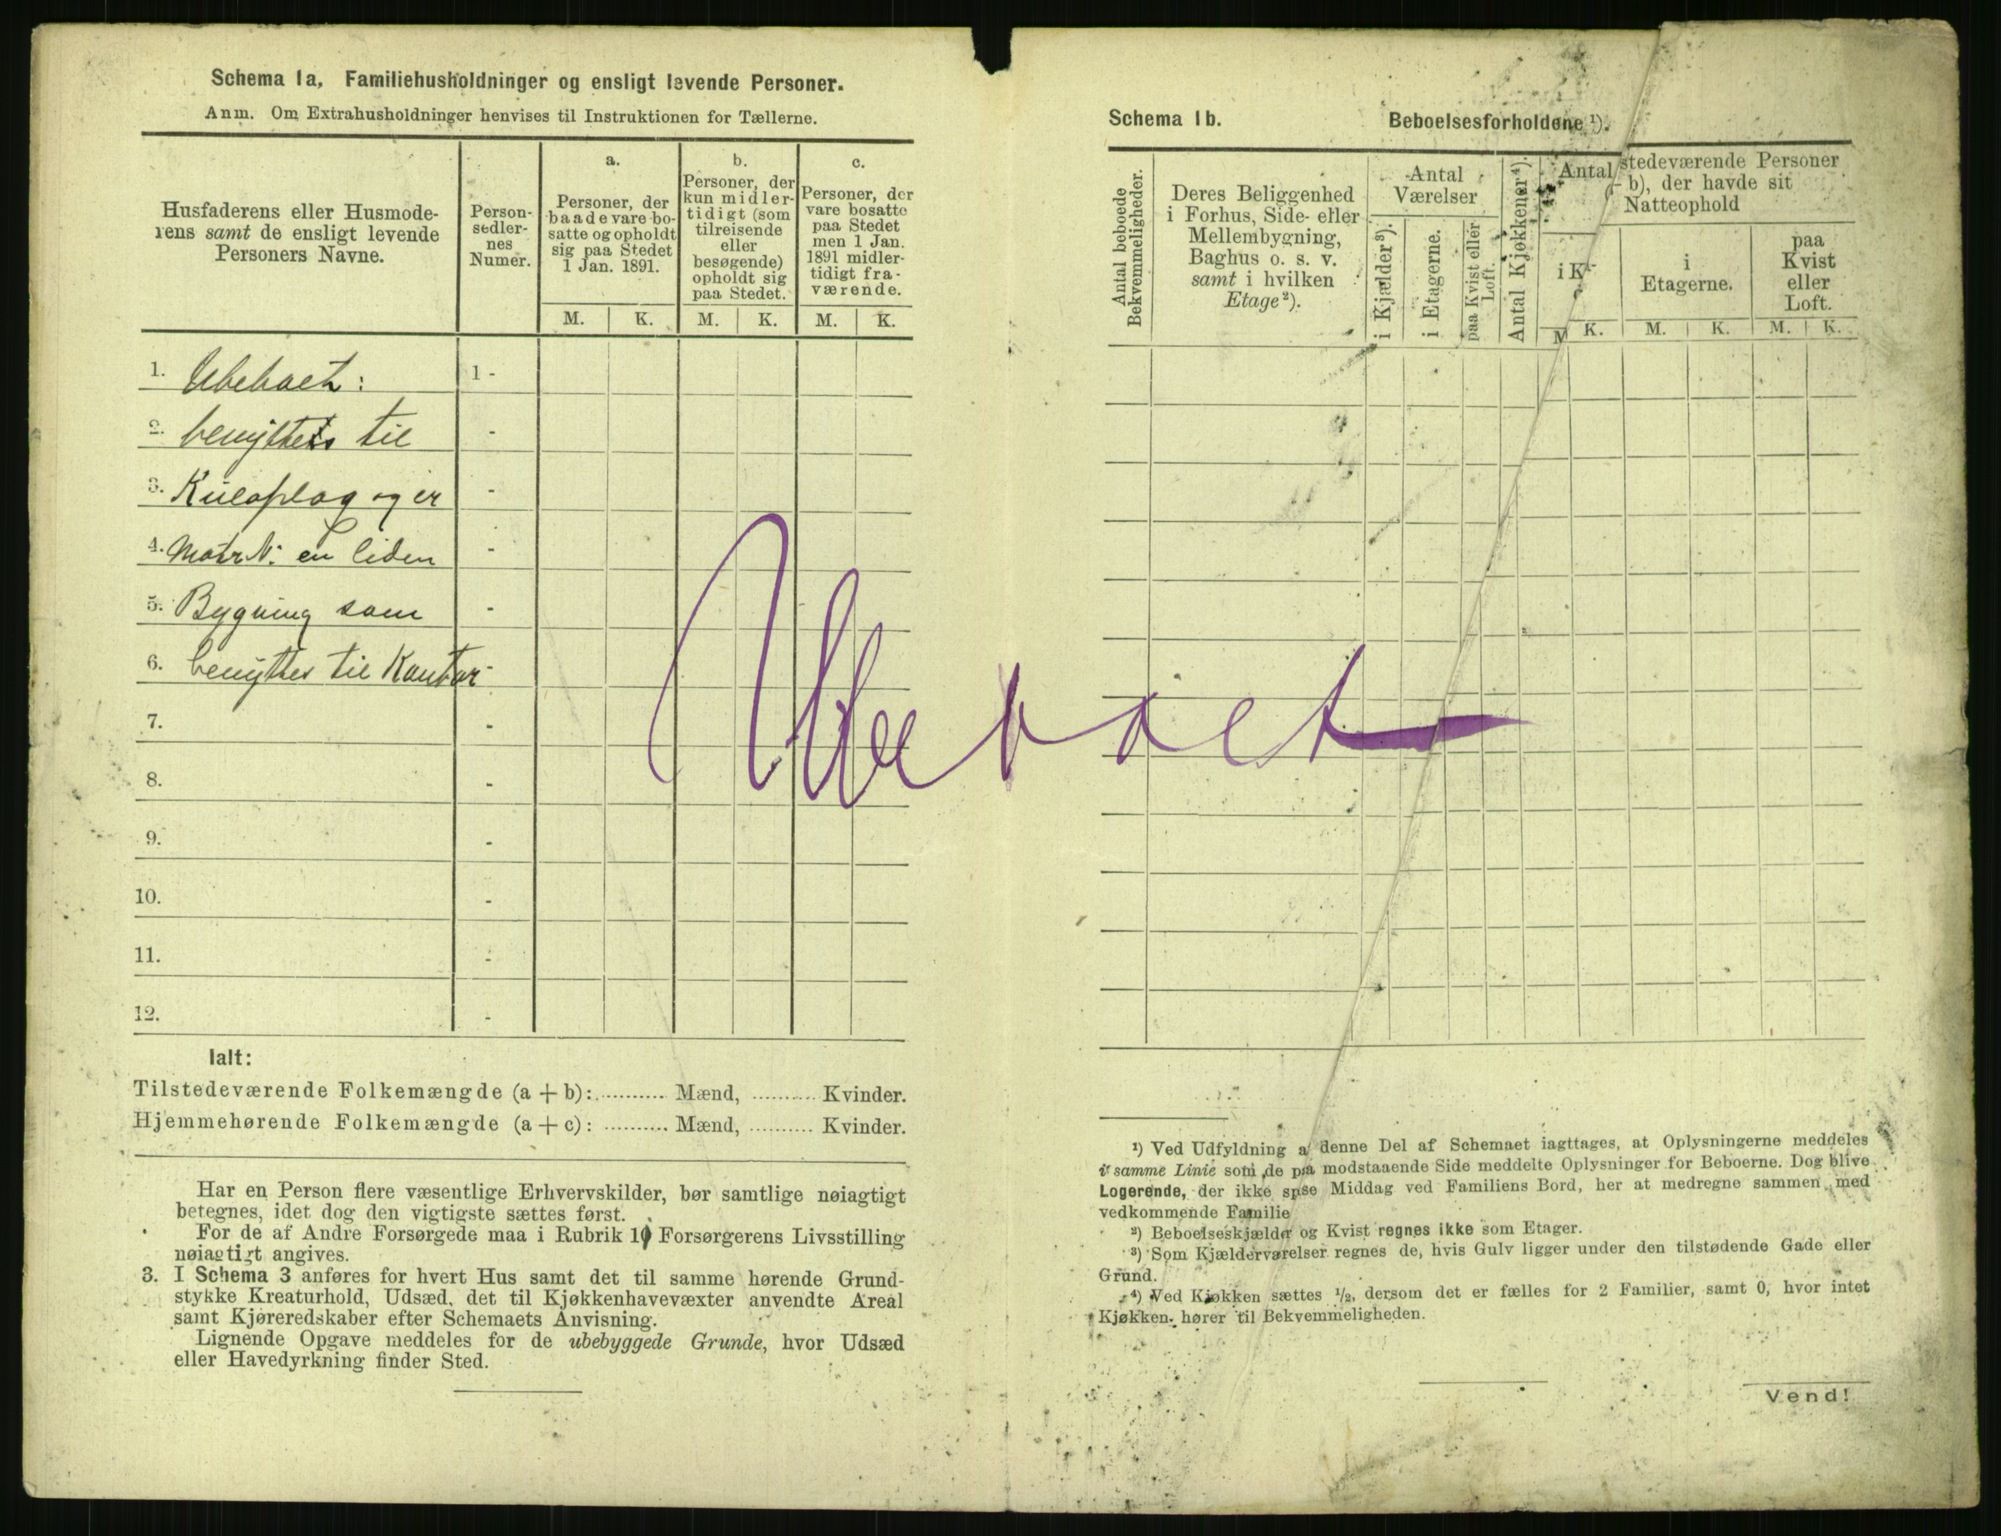 Schema 1a. Familiehusholdninger og ensligt levende Personer.
Anm. Om Extrahusholdninger henvises til Instruktionen for Tællerne.
Husfaderens eller Husmode-
rens samt de ensligt levende
Personers Navne.
Person-
sedler-
nes
Numer.
a.
Personer, der
baade vare bo-
satte og opholdt
sig paa Stedet
1 Jan. 1891.
b.
Personer, der
kun midler-
tidigt (som
tilreisende
eller
besøgende)
opholdt sig
paa Stedet.
c.
Personer, der
vare bosatte
paa Stedet
men 1 Jan.
1891 midler-
tidigt fra-
værende.
M. K. M. K. M. K.
1. Ubeboet: 1 -
2. benyttes til -
3. Kuloplag og er -
4. Matr N: en liden -
5. Bygning som -
6. benyttes til Kontor -
7. -
8. -
9. -
10. -
11. -
12. -
Ubeboet
Ialt:
Tilstedeværende Folkemængde (a + b): ........... Mænd, ........... Kvinder.
Hjemmehørende Folkemængde (a + c): ........... Mænd, ........... Kvinder.
Har en Person flere væsentlige Erhvervskilder, bør samtlige nøiagtigt
betegnes, idet dog den vigtigste sættes først.
For de af Andre Forsørgede maa i Rubrik 10 Forsørgerens Livsstilling
nøiagtigt angives.
3. I Schema 3 anføres for hvert Hus samt det til samme hørende Grund-
stykke Kreaturhold, Udsæd, det til Kjøkkenhavevæxter anvendte Areal
samt Kjøreredskaber efter Schemaets Anvisning.
Lignende Opgave meddeles for de ubebyggede Grunde, hvor Udsæd
eller Havedyrkning finder Sted.
Schema 1b. Beboelsesforholdene ¹).
Antal beboede
Bekvemmeligheder.
Deres Beliggenhed
i Forhus, Side- eller
Mellembygning,
Baghus o. s. v.
samt i hvilken
Etage ²).
Antal
Værelser
i Kjælder ³).
i Etagerne.
paa Kvist eller
Loft.
Antal Kjøkkener ⁴).
Antal stedeværende Personer
b), der havde sit
Natteophold
i K
i
Etagerne.
paa
Kvist
eller
Loft.
M K. M. K. M. K.
¹) Ved Udfyldning a denne Del af Schemaet iagttages, at Oplysningerne meddeles
i samme Linie som de paa modstaaende Side meddelte Oplysninger for Beboerne. Dog blive
Logerende, der ikke spise Middag ved Familiens Bord, her at medregne sammen med
vedkommende Familie
²) Beboelseskjælder og Kvist regnes ikke som Etager.
³) Som Kjælderværelser regnes de, hvis Gulv ligger under den tilstødende Gade eller
Grund.
⁴) Ved Kjøkken sættes ¹/₂, dersom det er fælles for 2 Familier, samt 0, hvor intet
Kjøkken hører til Bekvemmeligheden.
Vend!